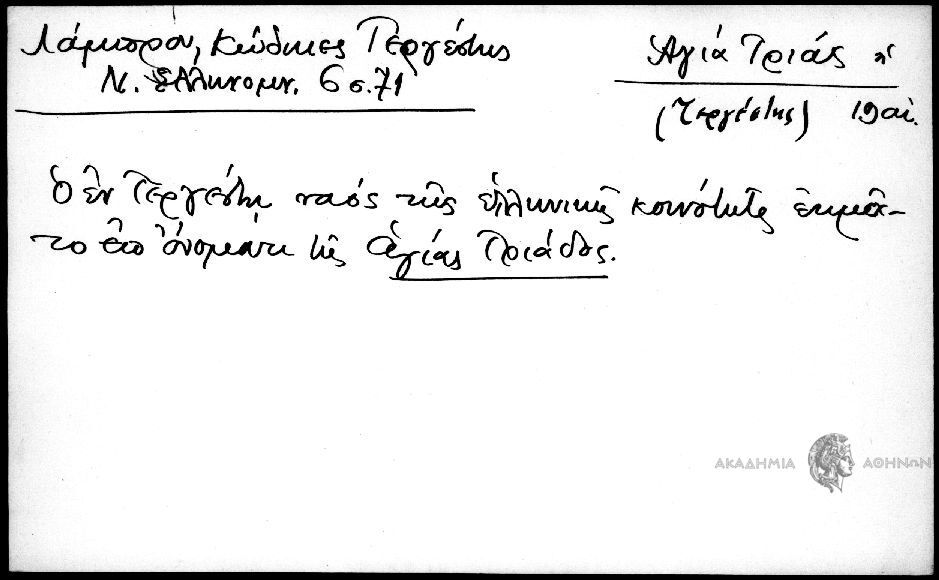 Λάμπρου, Κώδικες Τεργέστης
Ν. Ἑλληνομν. 6 σ. 71
Ἁγία Τριάς ἡ
(Τεργέστης) 19 αἰ.
Ὁ ἐν Τεργέστῃ ναός τῆς ἑλληνικῆς κοινότητος ἐτιμᾶ-
το ἐπ' ὀνόματι τῆς Ἁγίας Τριάδος.
ΑΚΑΔΗΜΙΑ ΑΘΗΝΩΝ